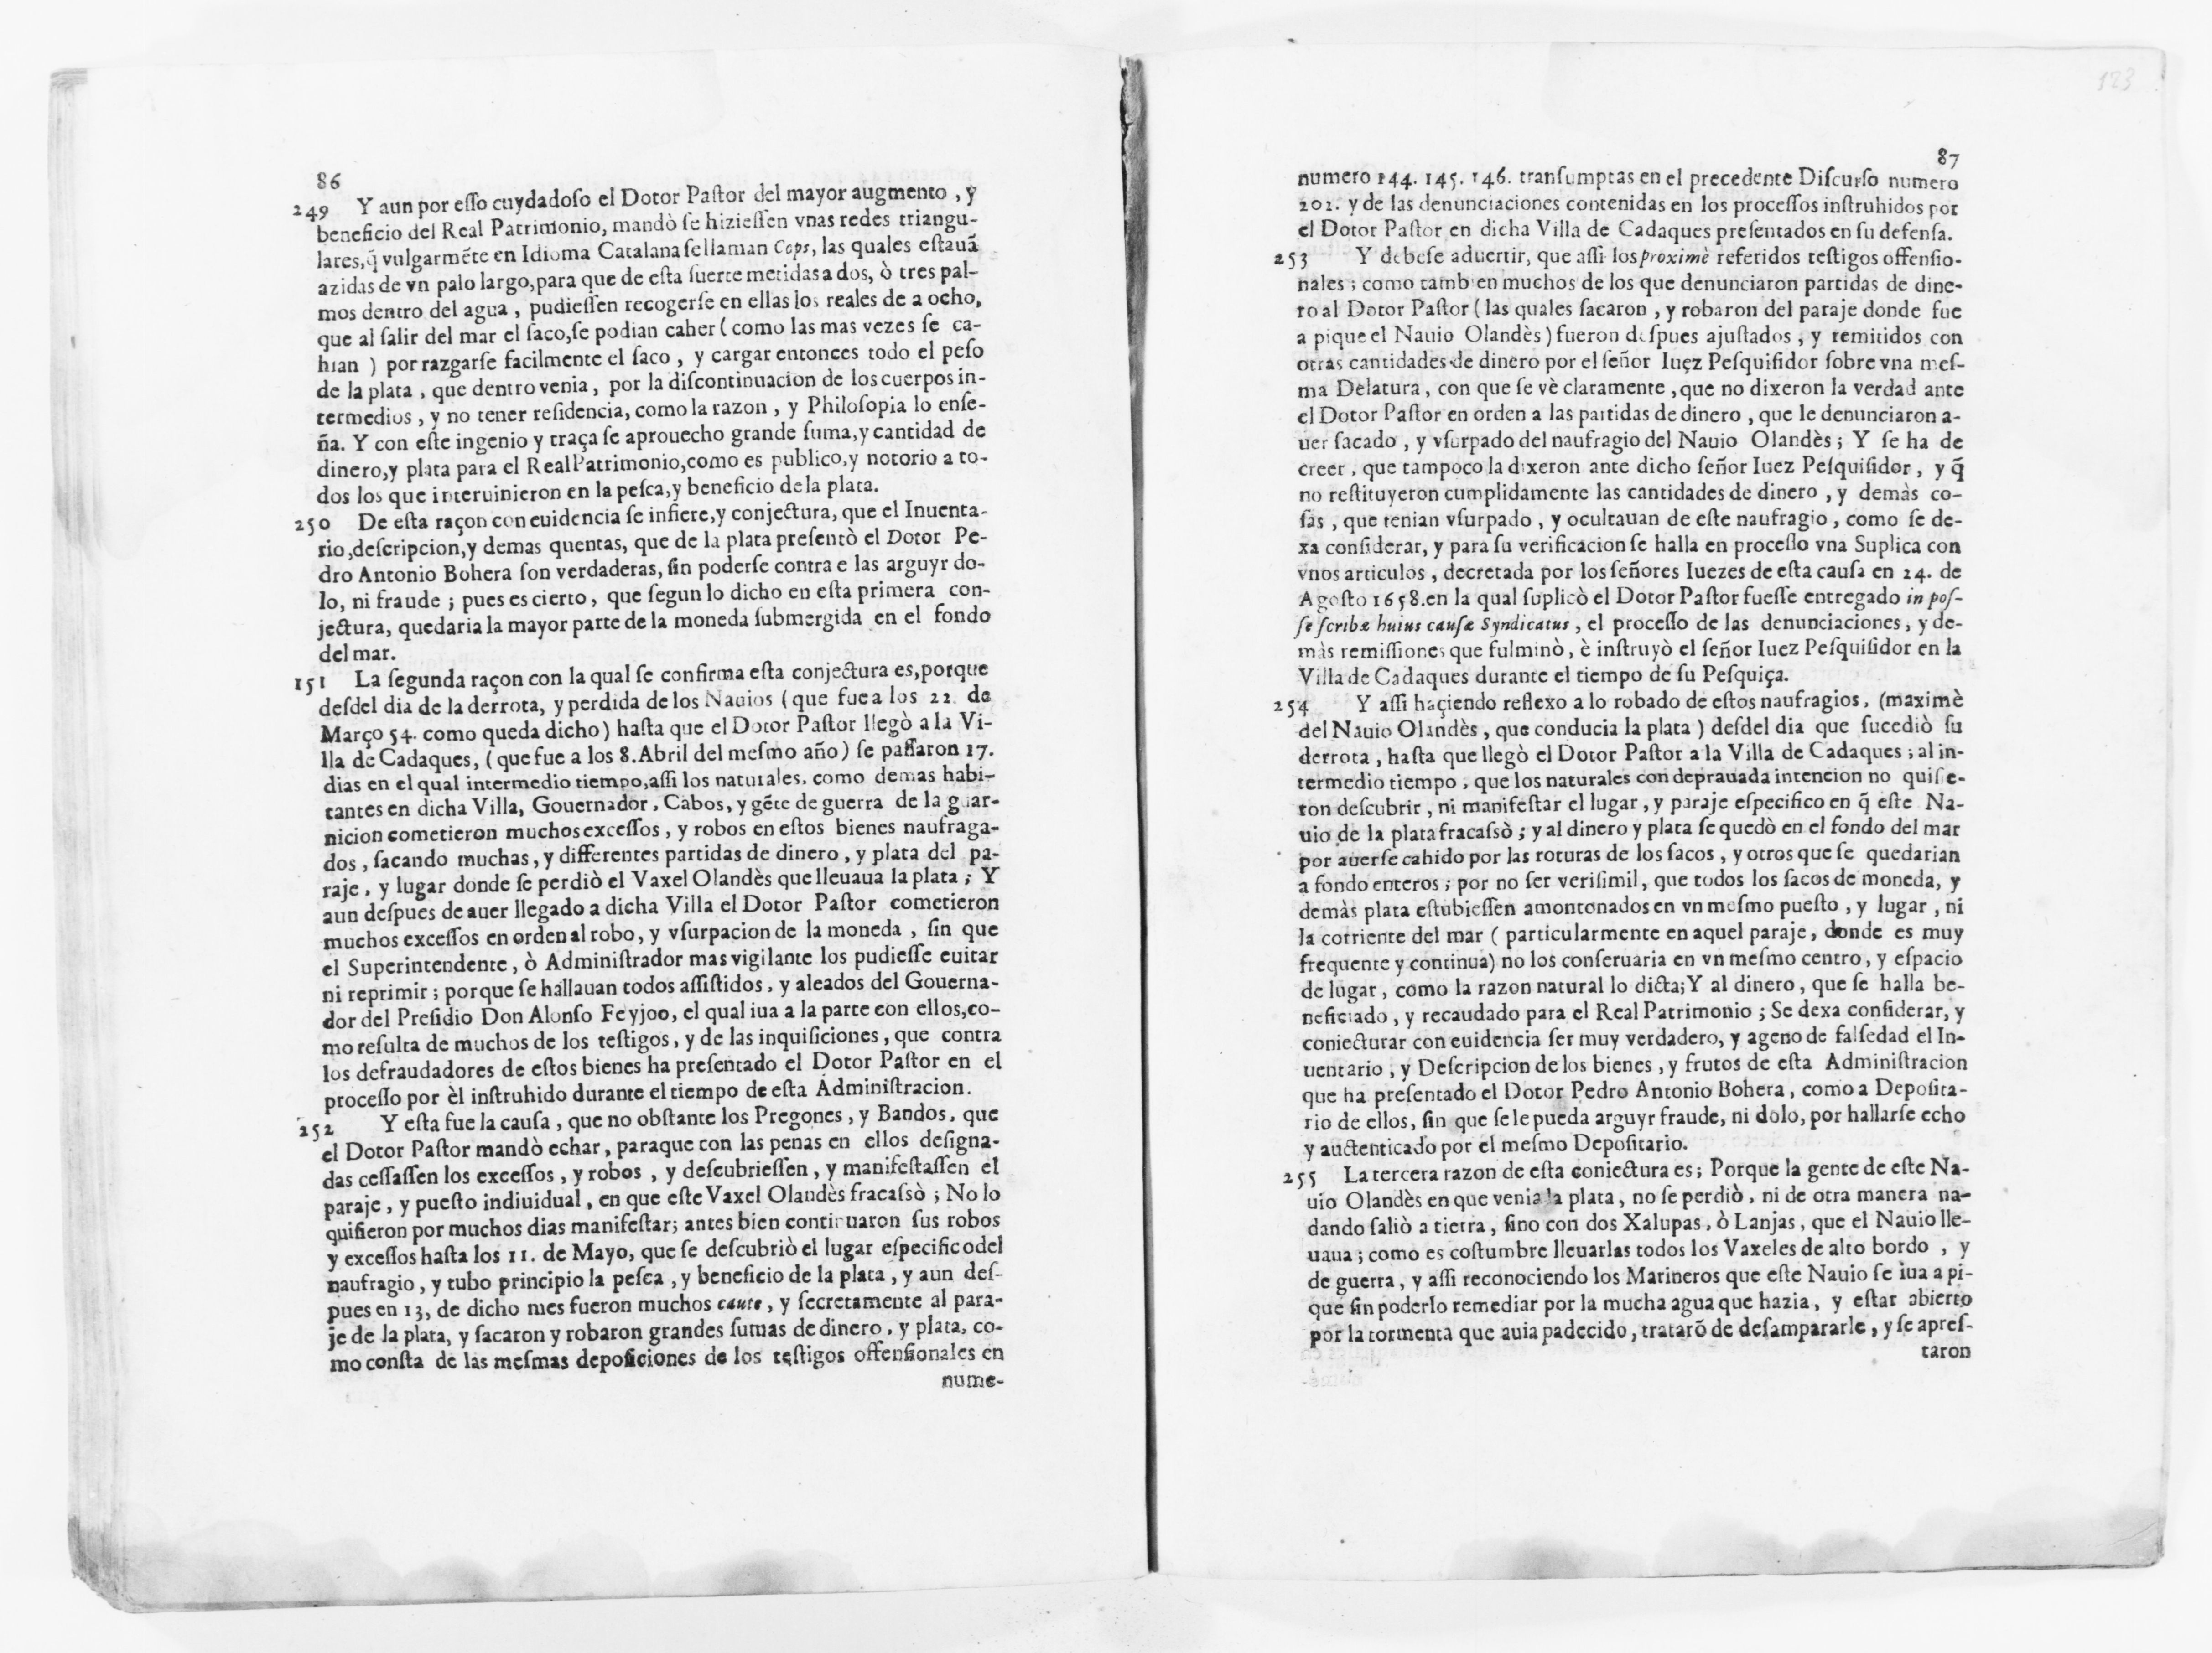 86
249 Y aun por eſſo cuydadoſo el Dotor Paſtor del mayor augmento , y
beneficio del Real Patrimonio, mandò ſe hizieſſen vnas redes triangu-
lares,q̃ vulgarmẽte en Idioma Catalana ſe llaman Cops, las quales eſtauã
azidas de vn palo largo,para que de eſta ſuerte metidas a dos, ò tres pal-
mos dentro del agua , pudieſſen recogerſe en ellas los reales de a ocho,
que al ſalir del mar el ſaco,ſe podian caher ( como las mas vezes ſe ca-
hian ) por razgarſe facilmente el ſaco , y cargar entonces todo el peſo
de la plata , que dentro venia , por la diſcontinuacion de los cuerpos in-
termedios , y no tener reſidencia, como la razon , y Philoſopia lo enſe-
ña. Y con eſte ingenio y traça ſe aprouecho grande ſuma,y cantidad de
dinero,y plata para el Real Patrimonio,como es publico,y notorio a to-
dos los que interuinieron en la peſca,y beneficio de la plata.
250 De eſta raçon con euidencia ſe infiere,y conjectura, que el Inuenta-
rio,deſcripcion,y demas quentas, que de la plata preſentò el Dotor Pe-
dro Antonio Bohera ſon verdaderas, ſin poderſe contra e las arguyr do-
lo, ni fraude ; pues es cierto , que ſegun lo dicho en eſta primera con-
jectura, quedaria la mayor parte de la moneda ſubmergida en el fondo
del mar.
151 La ſegunda raçon con la qual ſe confirma eſta conjectura es,porque
deſdel dia de la derrota, y perdida de los Nauios ( que fue a los 22. de
Março 54. como queda dicho) haſta que el Dotor Paſtor llegò a la Vi-
lla de Cadaques, ( que fue a los 8. Abril del meſmo año ) ſe paſſaron 17.
dias en el qual intermedio tiempo,aſſi los naturales, como demas habi-
tantes en dicha Villa, Gouernador , Cabos, y gẽte de guerra de la guar-
nicion cometieron muchos exceſſos , y robos en eſtos bienes naufraga-
dos , ſacando muchas, y differentes partidas de dinero , y plata del pa-
raje , y lugar donde ſe perdiò el Vaxel Olandès que lleuaua la plata ; Y
aun deſpues de auer llegado a dicha Villa el Dotor Paſtor cometieron
muchos exceſſos en orden al robo, y vſurpacion de la moneda , ſin que
el Superintendente, ò Adminiſtrador mas vigilante los pudieſſe euitar
ni reprimir ; porque ſe hallauan todos aſſiſtidos , y aleados del Gouerna-
dor del Preſidio Don Alonſo Feyjoo, el qual iua a la parte con ellos,co-
mo reſulta de muchos de los teſtigos , y de las inquiſiciones , que contra
los defraudadores de eſtos bienes ha preſentado el Dotor Paſtor en el
proceſſo por èl inſtruhido durante el tiempo de eſta Adminiſtracion.
252 Y eſta fue la cauſa , que no obſtante los Pregones , y Bandos, que
el Dotor Paſtor mandò echar , paraque con las penas en ellos deſigna-
das ceſſaſſen los exceſſos , y robos , y deſcubrieſſen , y manifeſtaſſen el
paraje , y pueſto indiuidual , en que eſte Vaxel Olandès fracaſsò ; No lo
quiſieron por muchos dias manifeſtar; antes bien continuaron ſus robos
y exceſſos haſta los 11. de Mayo, que ſe deſcubriò el lugar eſpecifico del
naufragio , y tubo principio la peſca , y beneficio de la plata , y aun deſ-
pues en 13, de dicho mes fueron muchos caute , y ſecretamente al para-
je de la plata, y ſacaron y robaron grandes ſumas de dinero , y plata, co-
mo conſta de las meſmas depoſiciones de los teſtigos offenſionales en
nume-
87
numero 144. 145. 146. tranſumptas en el precedente Diſcurſo numero
202. y de las denunciaciones contenidas en los proceſſos inſtruhidos por
el Dotor Paſtor en dicha Villa de Cadaques preſentados en ſu defenſa.
253 Y debeſe aduertir, que aſſi los proximè referidos teſtigos offenſio-
nales ; como tambien muchos de los que denunciaron partidas de dine-
ro al Dotor Paſtor ( las quales ſacaron , y robaron del paraje donde fue
a pique el Nauio Olandès ) fueron deſpues ajuſtados , y remitidos con
otras cantidades de dinero por el ſeñor Iuez Peſquiſidor ſobre vna meſ-
ma Delatura , con que ſe vè claramente , que no dixeron la verdad ante
el Dotor Paſtor en orden a las partidas de dinero , que le denunciaron a-
uer ſacado , y vſurpado del naufragio del Nauio Olandès ; Y ſe ha de
creer , que tampoco la dixeron ante dicho ſeñor Iuez Peſquiſidor , y q̃
no reſtituyeron cumplidamente las cantidades de dinero , y demàs co-
ſas , que tenian vſurpado , y ocultauan de eſte naufragio , como ſe de-
xa conſiderar, y para ſu verificacion ſe halla en proceſſo vna Suplica con
vnos articulos , decretada por los ſeñores Iuezes de eſta cauſa en 24. de
Agoſto 1658.en la qual ſuplicò el Dotor Paſtor fueſſe entregado in poſ-
ſe ſcribæ huius cauſæ Syndicatus , el proceſſo de las denunciaciones , y de-
màs remiſſiones que fulminò , è inſtruyò el ſeñor Iuez Peſquiſidor en la
Villa de Cadaques durante el tiempo de ſu Peſquiça.
254 Y aſſi haçiendo reflexo a lo robado de eſtos naufragios , (maximè
del Nauio Olandès , que conducia la plata ) deſdel dia que ſucediò ſu
derrota , haſta que llegò el Dotor Paſtor a la Villa de Cadaques ; al in-
termedio tiempo , que los naturales con deprauada intencion no quiſie-
ron deſcubrir , ni manifeſtar el lugar , y paraje eſpecifico en q̃ eſte Na-
uio de la plata fracaſsò ; y al dinero y plata ſe quedò en el fondo del mar
por auerſe cahido por las roturas de los ſacos , y otros que ſe quedarian
a fondo enteros ; por no ſer veriſimil , que todos los ſacos de moneda, y
demàs plata eſtubieſſen amontonados en vn meſmo pueſto , y lugar , ni
la corriente del mar ( particularmente en aquel paraje , donde es muy
frequente y continua) no los conſeruaria en vn meſmo centro , y eſpacio
de lugar , como la razon natural lo dicta;Y al dinero , que ſe halla be-
neficiado , y recaudado para el Real Patrimonio ; Se dexa conſiderar, y
coniecturar con euidencia ſer muy verdadero, y ageno de falſedad el In-
uentario , y Deſcripcion de los bienes , y frutos de eſta Adminiſtracion
que ha preſentado el Dotor Pedro Antonio Bohera , como a Depoſita-
rio de ellos, ſin que ſe le pueda arguyr fraude, ni dolo, por hallarſe echo
y auctenticado por el meſmo Depoſitario.
255 La tercera razon de eſta coniectura es; Porque la gente de eſte Na-
uio Olandès en que venia la plata , no ſe perdiò , ni de otra manera na-
dando ſaliò a tierra , ſino con dos Xalupas , ò Lanjas , que el Nauio lle-
uaua ; como es coſtumbre lleuarlas todos los Vaxeles de alto bordo , y
de guerra , y aſſi reconociendo los Marineros que eſte Nauio ſe iua a pi-
que ſin poderlo remediar por la mucha agua que hazia , y eſtar abierto
por la tormenta que auia padecido , tratarõ de deſampararle , y ſe apreſ-
taron
123